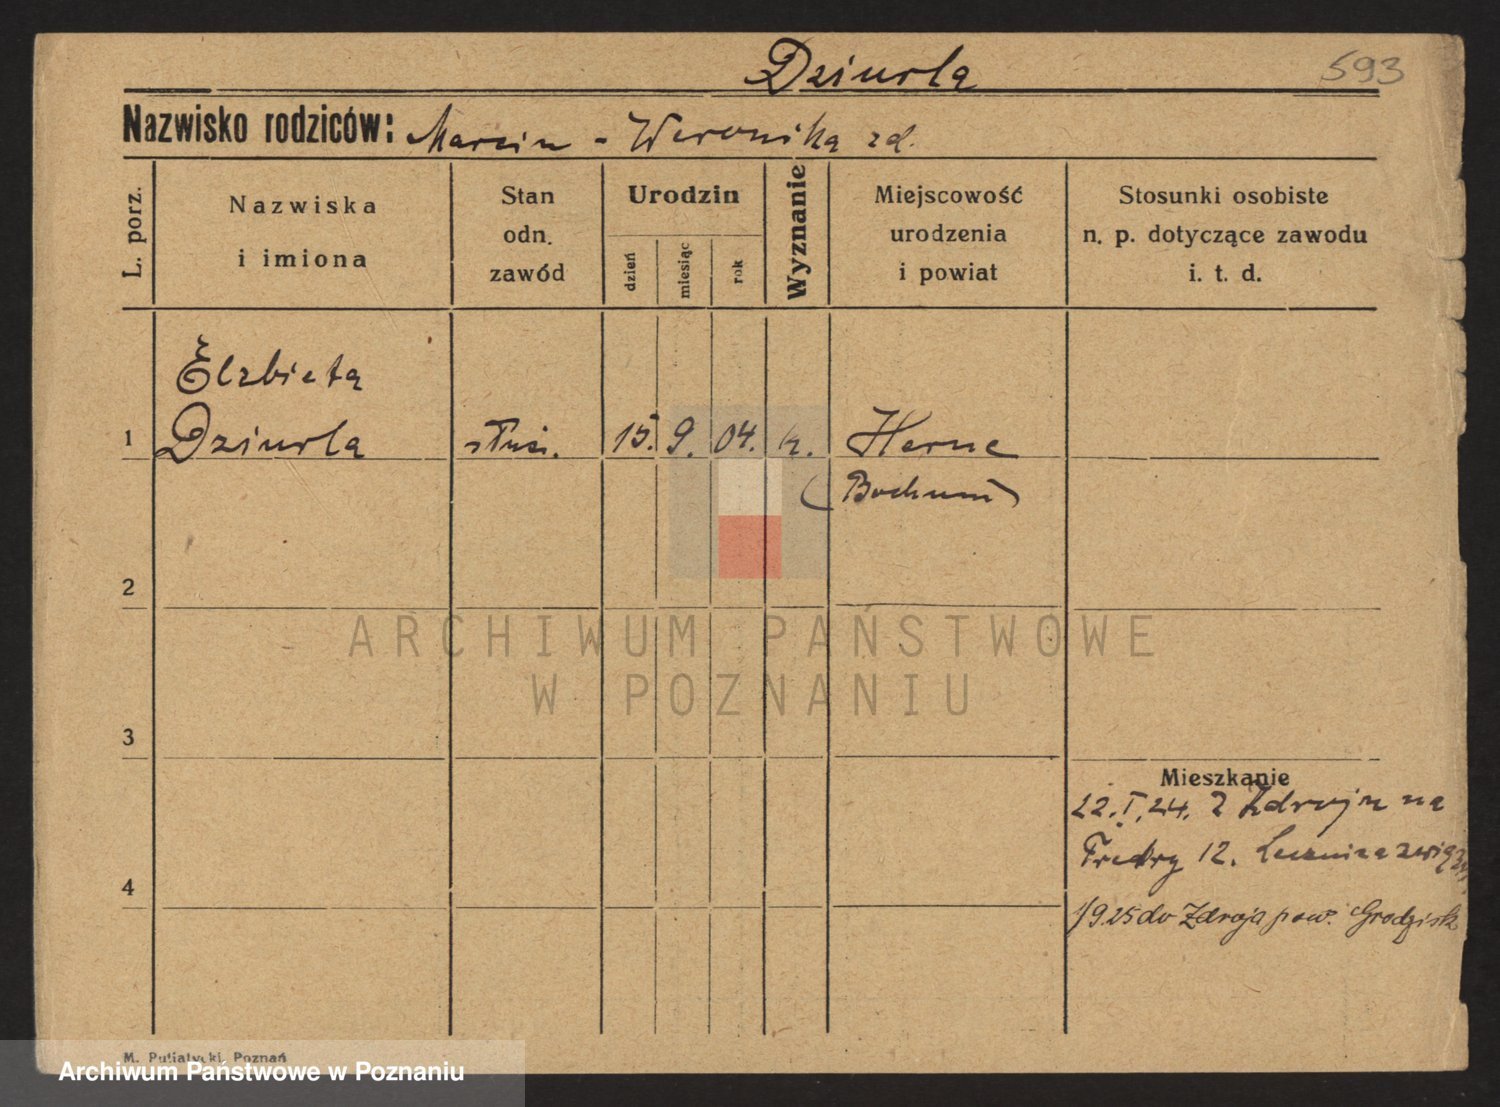 Dziurla 593
Nazwisko rodziców: Marcin - Weronika zd.
L. porz.
Nazwiska
i imiona
Stan
odn.
zawód
Urodzin
dzień
miesiąc
rok
Wyznanie
Miejscowość
urodzenia
i powiat
Stosunki osobiste
n. p. dotyczące zawodu
i. t. d.
Elzbieta
1 Dziurla służ. 15. 9. 04. k. Herne
(Bochum)
2
3
4
Mieszkanie
22.I.24. z Zdroju na
Fredry 12.
1/9.25 do Zdroja pow. Grodzisk
M. Putiatycki, Poznań
ARCHIWUM PAŃSTWOWE
W POZNANIU
Archiwum Państwowe w Poznaniu